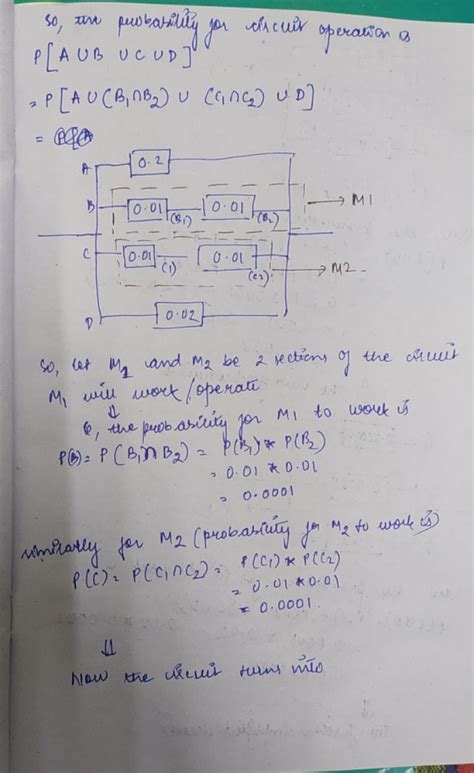 So, the probability for circuit operation is
P[A∪B ∪C∪D]
= P[A∪(B₁∩B₂) ∪ (C₁∩C₂) ∪ D]
=
A 0.2
B 0.01 (B₁) 0.01 (B₂) → M1
C 0.01 (C₁) 0.01 (C₂) → M2
D 0.02
So, let M₁ and M₂ be 2 sections of the circuit
M₁ will work/operate
⇓
the probability for M1 to work is
P(B) = P(B₁∩B₂) = P(B₁) * P(B₂)
= 0.01 * 0.01
= 0.0001
similarly for M2 (probability for M₂ to work is)
P(C) = P(C₁∩C₂) = P(C₁) * P(C₂)
= 0.01 * 0.01
= 0.0001
⇓
Now the circuit turns into